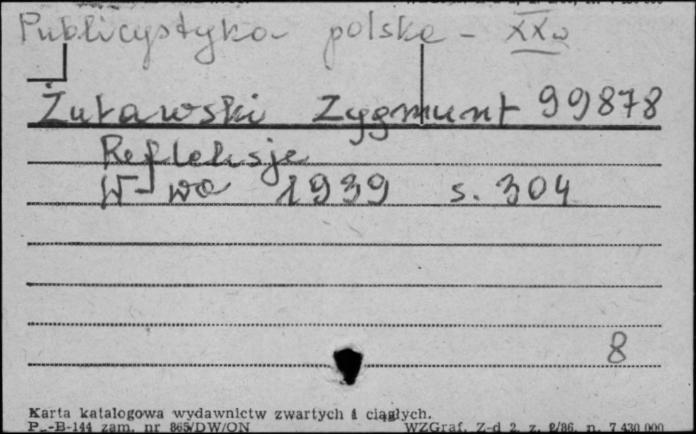 Publicystyka polska - XX w
Żuławski Zygmunt 99878
Refleksje
W-wa 1939 s. 304
8
Karta katalogowa wydawnictw zwartych i ciągłych.
P.-B-144 zam. nr 865/DW/ON WZGraf. Z-d 2, z. 2/86, n. 7 430 000